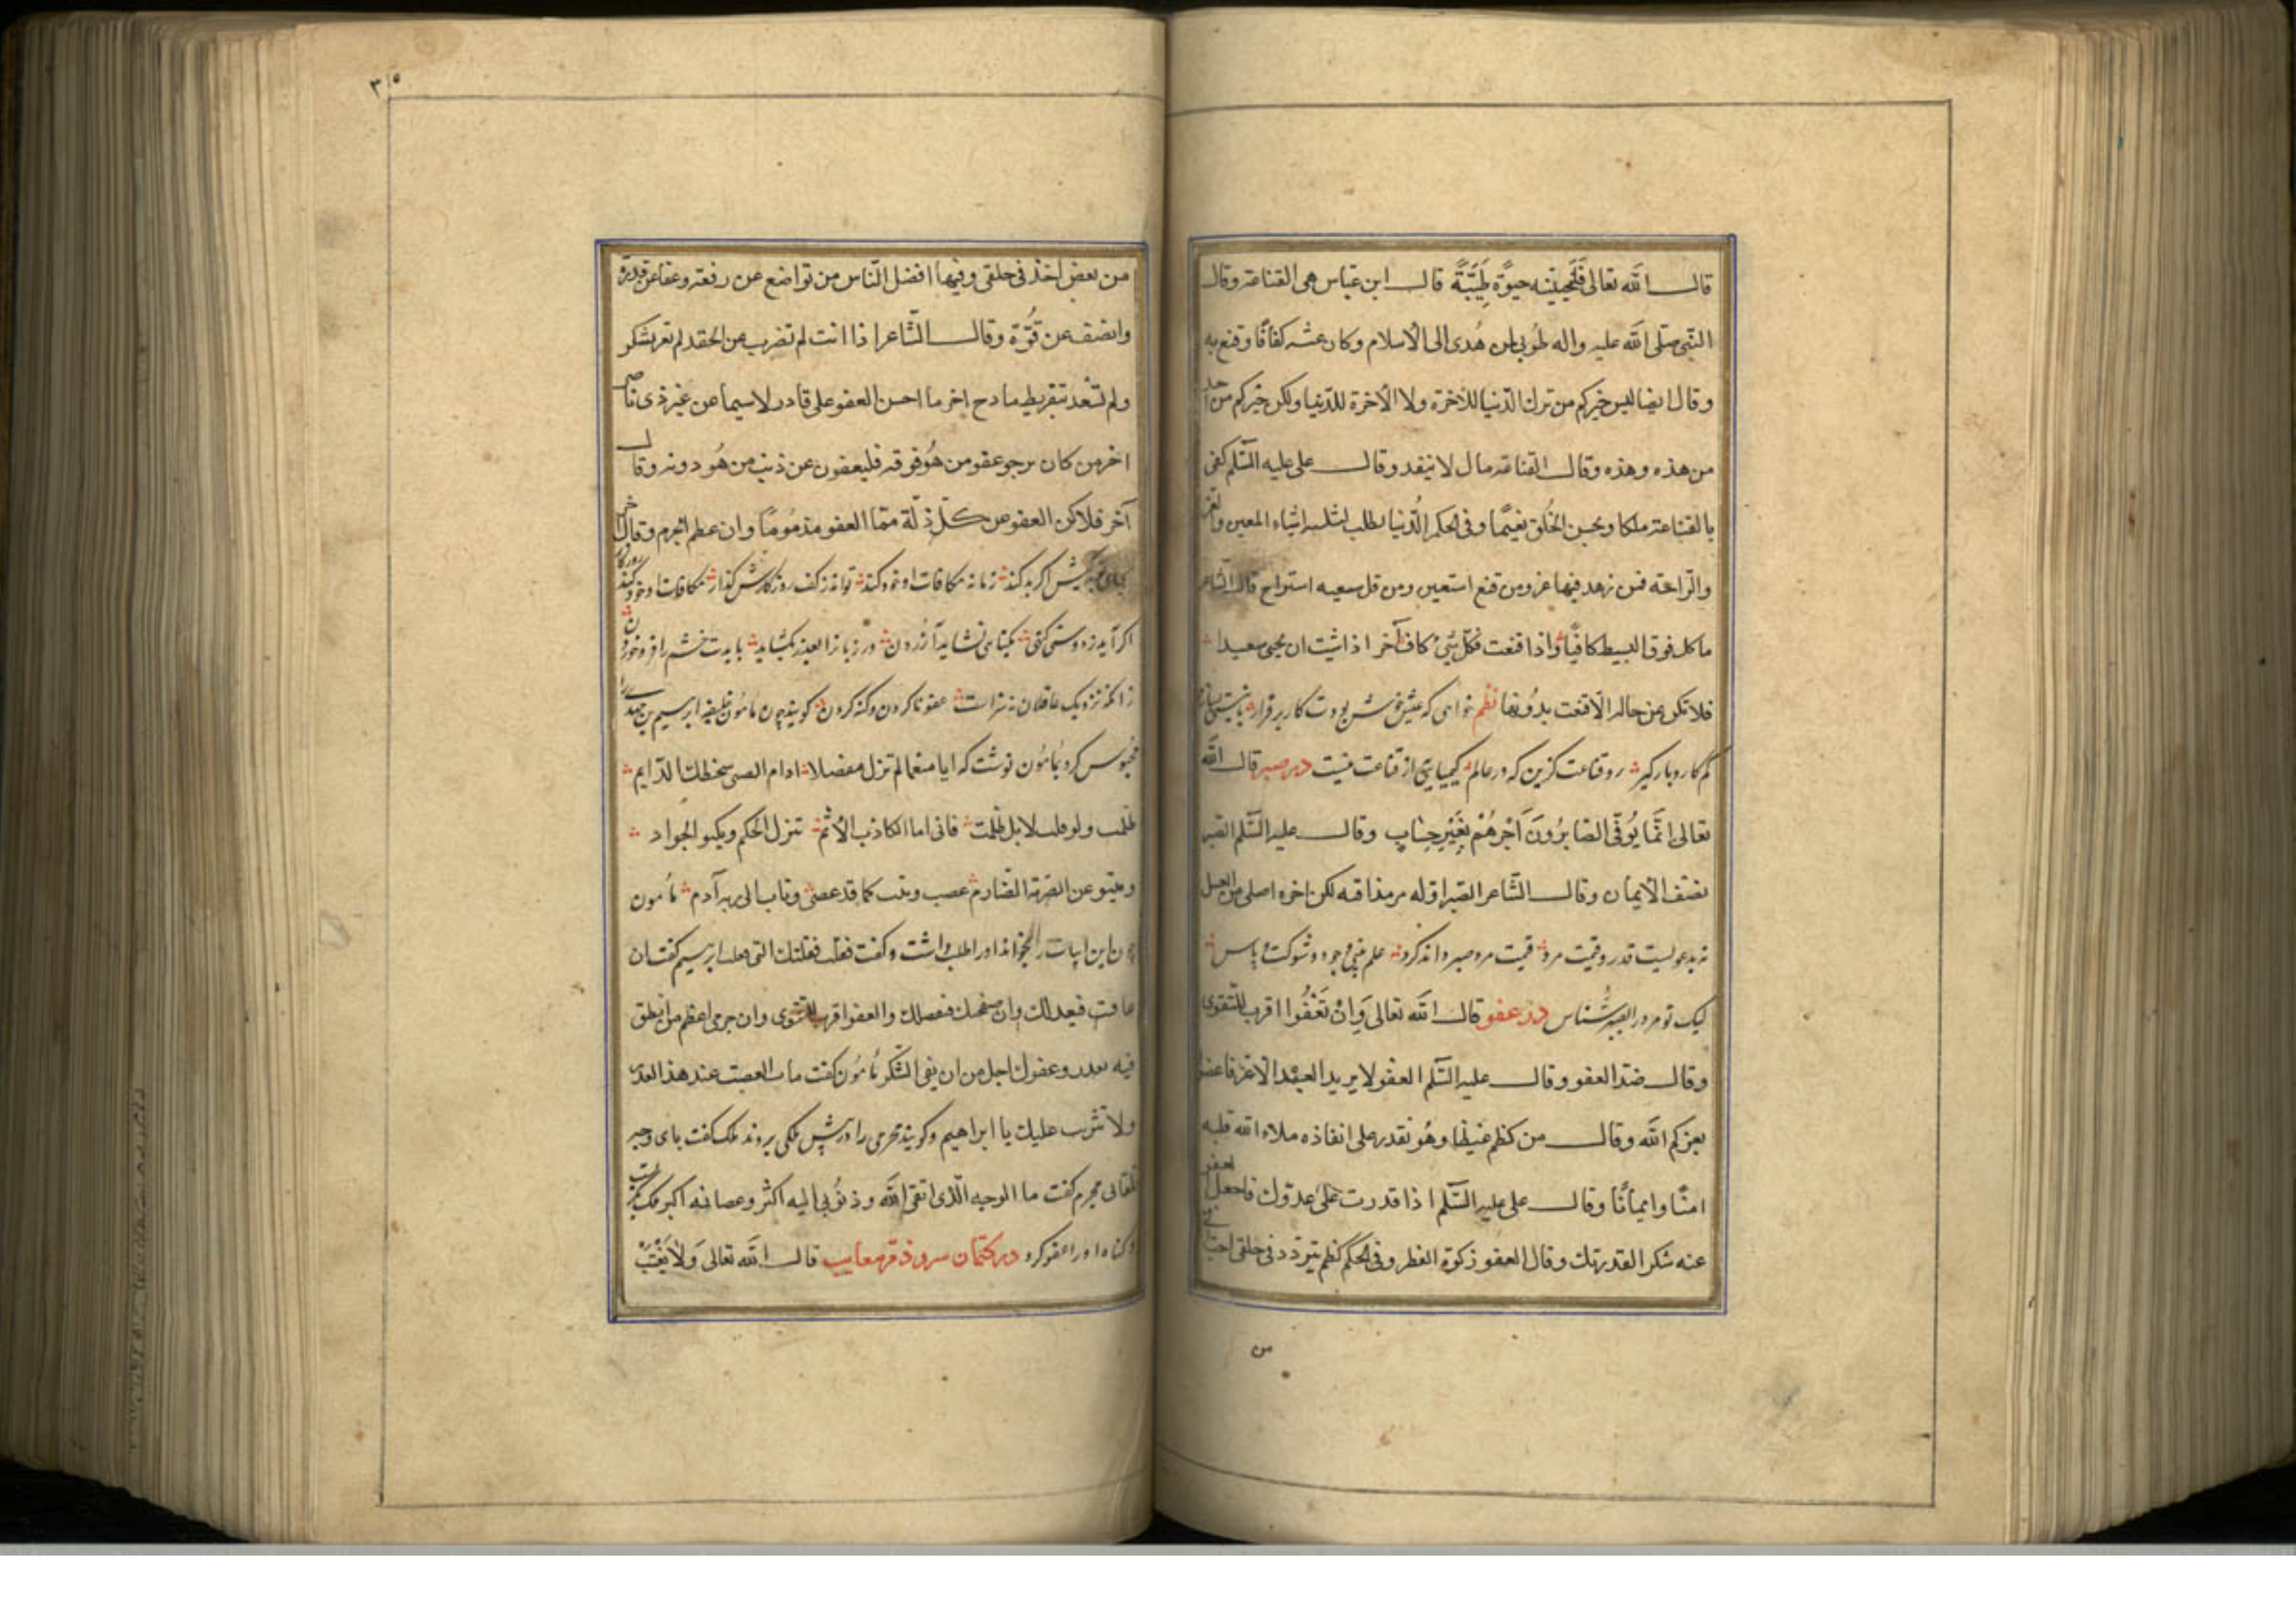 قال الله تعالی فلنحیینه حیوة طیبة قال ابن عباس هی القناعة وقال
النبی صلی الله علیه واله طوبی لمن هدی الی الاسلام وکان عیشه کفافا وقنع به
وقال ایضا لیس خیرکم من ترک الدنیا للاخرة ولا الاخرة للدنیا ولکن خیرکم من اخذ
من هذه وهذه وقال القناعة مال لا ینفد وقال علی علیه السلم کفی
بالقناعة ملکا وبحسن الخلق نعیما وفی الحکم الدنیا یطلب لثلثه اشیاء المعین والعز
والراحة فمن زهد فیها عز ومن قنع استعین ومن قل سعیه استراح قال الشاعر
ما کل فوق البسیط کافیا واذا قنعت فکل شئ کاف آخر اذا شئت ان یحیی سعیدا
فلا تکن عن حاله الا قنعت بدونها نظم خواهی که عیش خوش بودت کار برقرار
کم کار و بار کیر رو قناعت کزین که در عالم کیمیایی از قناعت نیست در صبر قال الله
تعالی انما یوفی الصابرون اجرهم بغیر حساب وقال علیه السلم الصبر
نصف الایمان وقال الشاعر الصبر اوله مر مذاقه لکن اخره احلی من العسل
نه بدعویست قدر وقیمت مرد قیمت مرد صبر داند کرد علم جود و شوکت پاس
لیک تو مرد را بصبر شناس در عفو قال الله تعالی وان تعفوا اقرب للتقوی
وقال ضد العفو وقال علیه السلم العفو لا یرید العبد الا عزا فاعفوا
یعزکم الله وقال من کظم غیظا وهو یقدر علی انفاذه ملاء الله قلبه
امنا وایمانا وقال علی علیه السلم اذا قدرت علی عدوک فاجعل العفو
عنه شکر القدرتک وقال العفو زکوة الظفر وفی الحکم کظم یتردد فی حلقی احب الی
من
٣١٥
من بعض اخذ فی حلقی وفیها افضل الناس من تواضع عن رفعة وعفا عن قدرة
وانصف عن قوة وقال الشاعر اذا انت لم تضرب عن الحقد لم تفز بشکر
ولم تسعد بتقریظ مادح اخر ما احسن العفو علی قادر لا سیما عن غیر ذی ناصر
اخر من کان یرجو عفو من هو فوقه فلیعفون عن ذنب من هو دونه وقال
آخر فلا کن العفو عن کل ذلة مما العفو مذموما وان عظم الجرم وقال اخر
اکر بد کند زمانه مکافات او خود کند تواند کف روزکارش کذار مکافات او خود کند روزکار
اکر آید ز دوستی کنهی بکناهی نشاید آزردن ور زبان را بعذر بکشاید بایدت خشم را فرو خوردن
زانکه نزدیک عاقلان بتر است عفو ناکردن و کنه کردن کویند چون مامون خلیفه ابرهیم بن مهدی را
محبوس کرد بمامون نوشت که ایا منعما لم تزل مفضلا ادام الصی سخطک الدایم
ظلمت ولو قلت لا بل ظلمت فانی اما الکاذب الاثم تنزل الحکم ویکبو الجواد
وینبو عن الضربة الصارم عصیت وتبت کما قد عصی وتاب الی ربه آدم مامون
چون این ابیات را بخواند او را طلب داشت و کفت فعلت فعلتک التی فعلت ابرهیم کفت ان
عاقبت فبعدلک وان صفحت فبفضلک والعفو اقرب للتقوی وان جرمی اعظم من انطق
فیه بعذر وعفوک اجل من ان یفی الشکر مامون کفت مات الغضب عند هذا العذر
ولا تثرب علیک یا ابراهیم و کویند مجرمی را در پیش ملکی بردند ملک کفت بای وجه
تلقانی مجرم کفت ما الوجه الذی اتقی الله وذنوبی الیه اکثر وعصیانه اکبر ملک
کناه او را عفو کرد در کتمان سر و ذکر معایب قال الله تعالی ولا یغتب